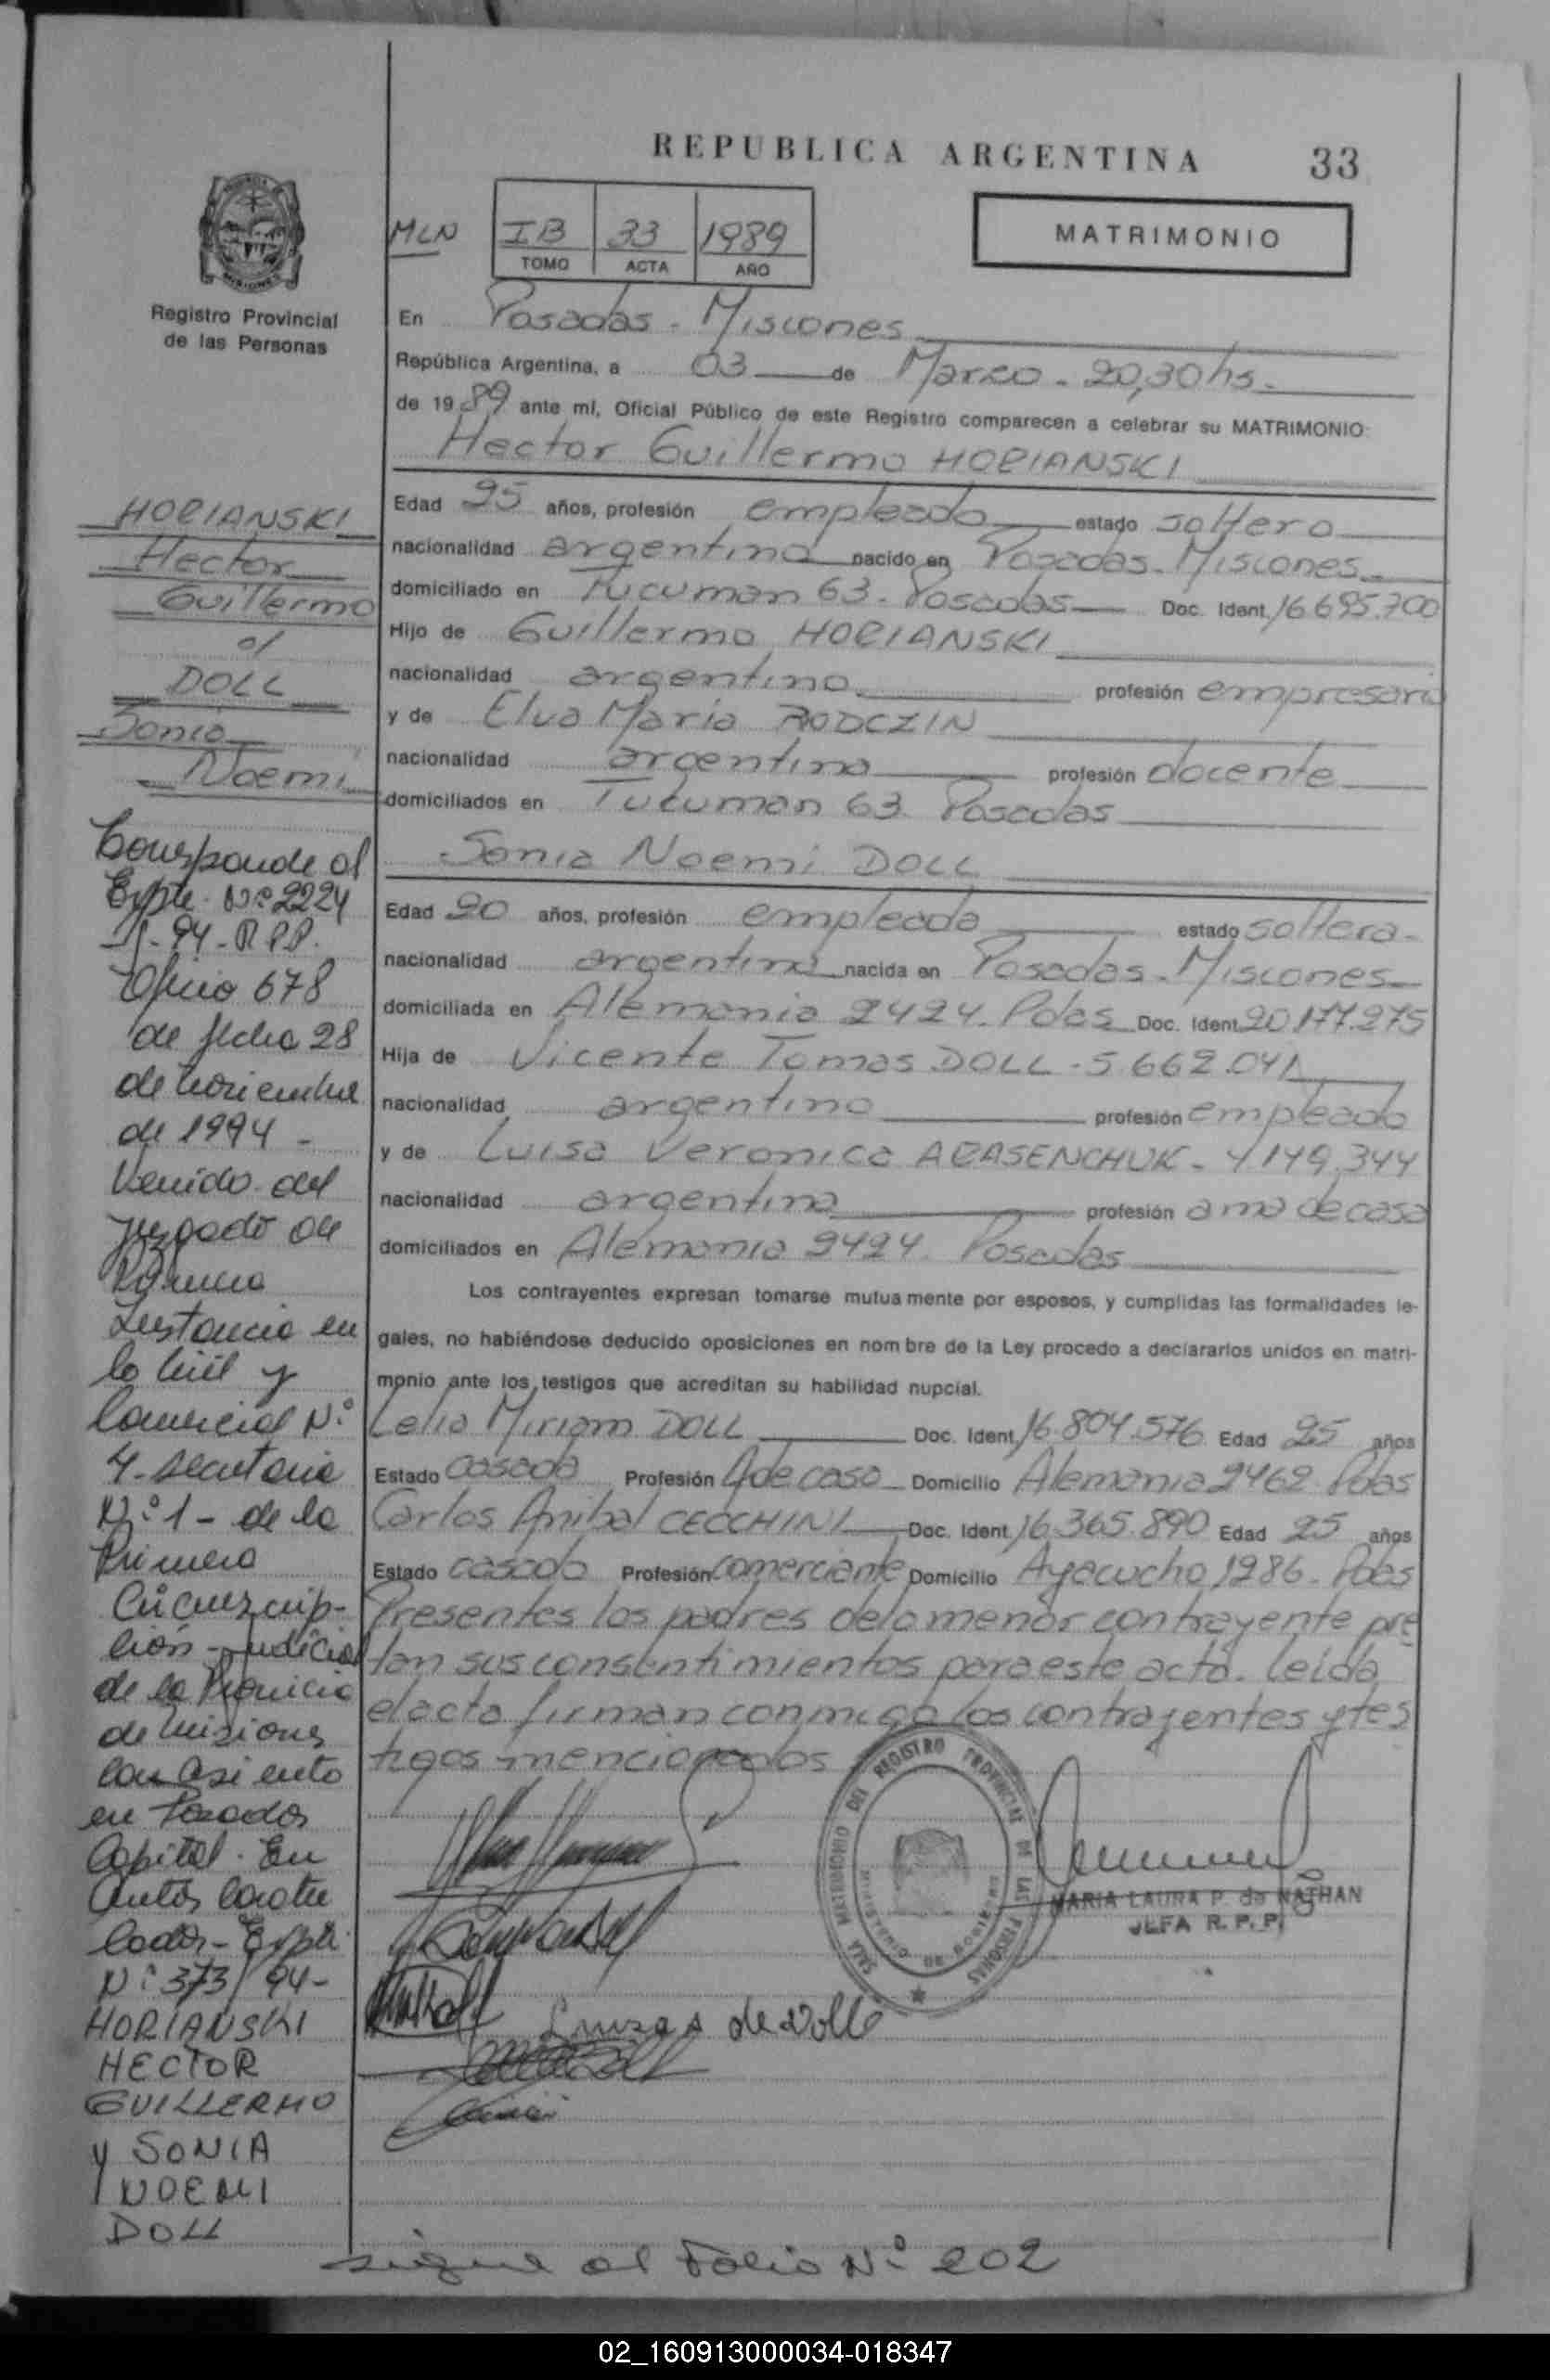 REPUBLICA ARGENTINA 33
MLN IB 33 1989
TOMO ACTA AÑO
MATRIMONIO
Registro Provincial
de las Personas
En Posadas - Misiones
República Argentina, a 03 de Marzo - 20,30 hs -
de 19 89 ante mí, Oficial Público de este Registro comparecen a celebrar su MATRIMONIO:
Hector Guillermo HORIANSKI
Edad 25 años, profesión empleado estado soltero
nacionalidad argentina nacido en Posadas - Misiones
domiciliado en Tucuman 63 - Posadas Doc. Ident. 16.695.700
Hijo de Guillermo HORIANSKI
nacionalidad argentino profesión empresario
y de Elva Maria RODCZIN
nacionalidad argentina profesión docente
domiciliados en Tucuman 63. Posadas
Sonia Noemi DOLL
Edad 20 años, profesión empleada estado soltera -
nacionalidad argentina nacida en Posadas - Misiones
domiciliada en Alemania 2424. Pdas Doc. Ident. 20.177.275
Hija de Vicente Tomas DOLL - 5.662.041
nacionalidad argentino profesión empleado
y de Luisa Veronica ARASENCHUK - 4.149.344
nacionalidad argentina profesión ama de casa
domiciliados en Alemania 2424. Posadas
Los contrayentes expresan tomarse mutuamente por esposos, y cumplidas las formalidades le-
gales, no habiéndose deducido oposiciones en nombre de la Ley procedo a declararlos unidos en matri-
monio ante los testigos que acreditan su habilidad nupcial.
Lelia Miriam DOLL Doc. Ident. 16.804.576 Edad 25 años
Estado casada Profesión A de casa Domicilio Alemania 2462 Pdas
Carlos Anibal CECCHINI Doc. Ident. 16.365.890 Edad 25 años
Estado casado Profesión comerciante Domicilio Ayacucho 1286 - Pdas
Presentes los padres de la menor contrayente pres
tan sus consentimientos para este acto. Leida
el acta firman conmigo los contrayentes y tes
tigos mencionados
SALA MATRIMONIO DEL REGISTRO PROVINCIAL DE LAS PERSONAS
MINISTERIO DE GOBIERNO
MARIA LAURA P. de NATHAN
JEFA R. P. P.
Luisa A de Doll
HORIANSKI
Hector
Guillermo
c/
DOLL
Sonia
Noemi
Corresponde al
Expte. Nº 2224
94 - R.P.P.
Oficio 678
de fecha 28
de noviembre
de 1994 -
Venido del
Juzgado de
Primera
Instancia en
lo Civil y
Comercial Nº
4 - Secretaria
Nº 1 - de la
Primera
Circunscrip-
ción - judicial
de la Provincia
de Misiones
con asiento
en Posadas
Capital. En
autos caratu
lados - Expte.
Nº 373/94 -
HORIANSKI
HECTOR
GUILLERMO
y SONIA
NOEMI
DOLL
sigue al Folio Nº 202
02_160913000034-018347